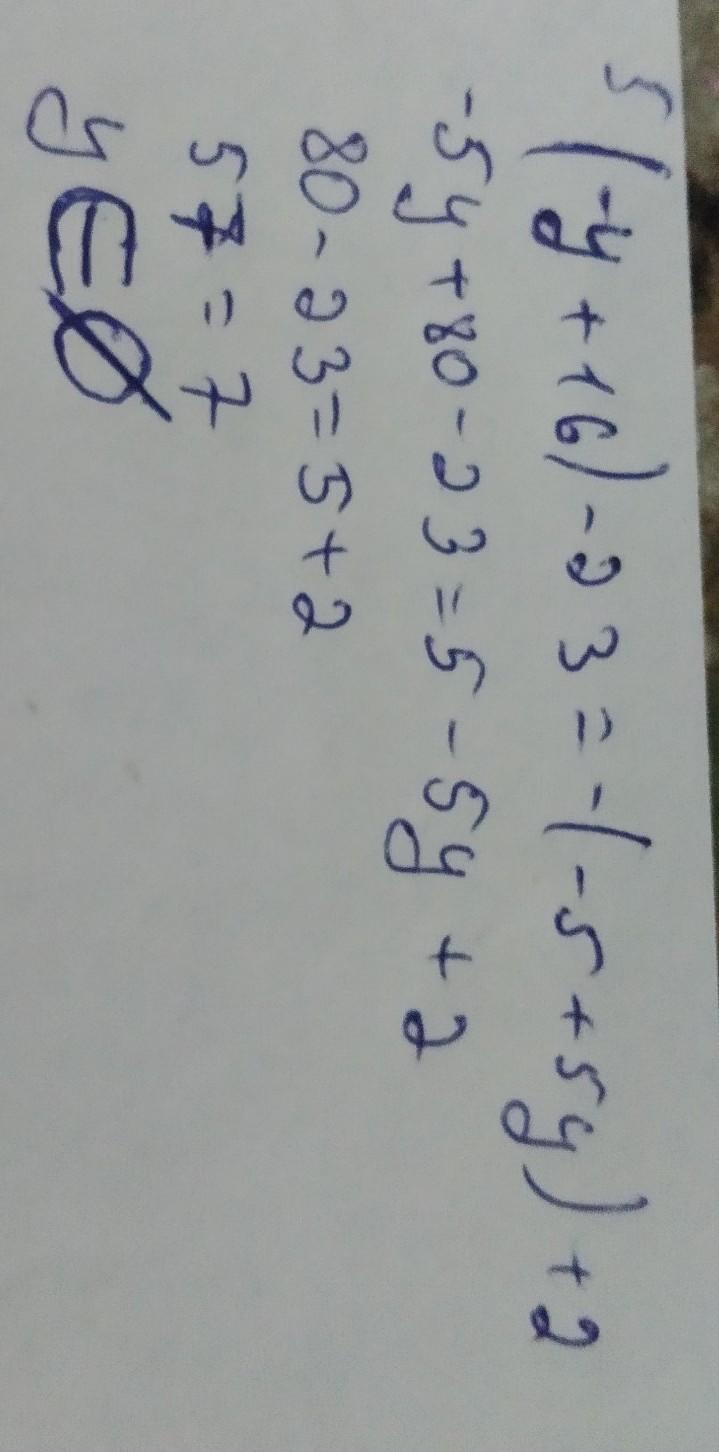 5(-y+16)-23=-(-5+5y)+2
-5y+80-23=5-5y+2
80-23=5+2
57=7
y∈∅